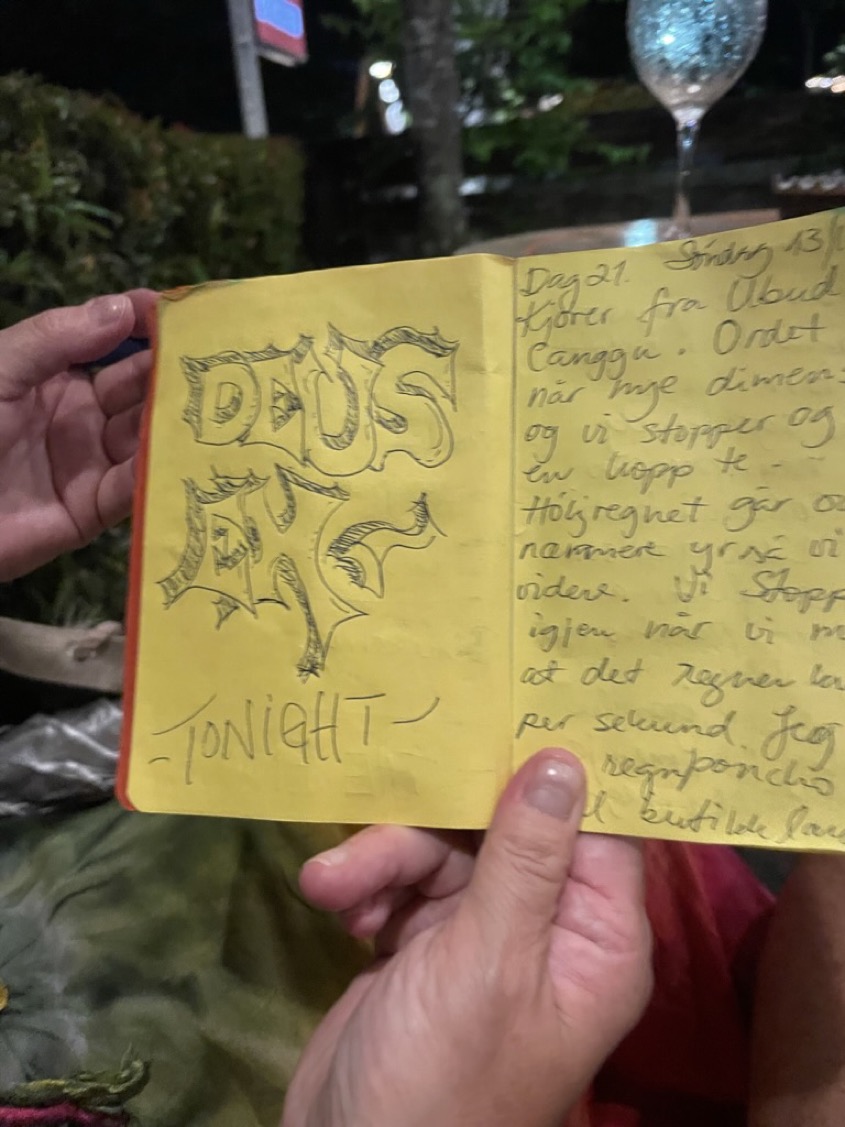 DEUS
-TONIGHT-
Dag 21. Søndag 13/
Kjører fra Ubud
Canggu. Ordet
når nye dimens
og vi stopper og
en kopp te -
Høljregnet går
nærmere yr så vi
videre. Vi Stopp
igjen når vi m
at det regner
per sekund. Jeg
regnponcho
butikk